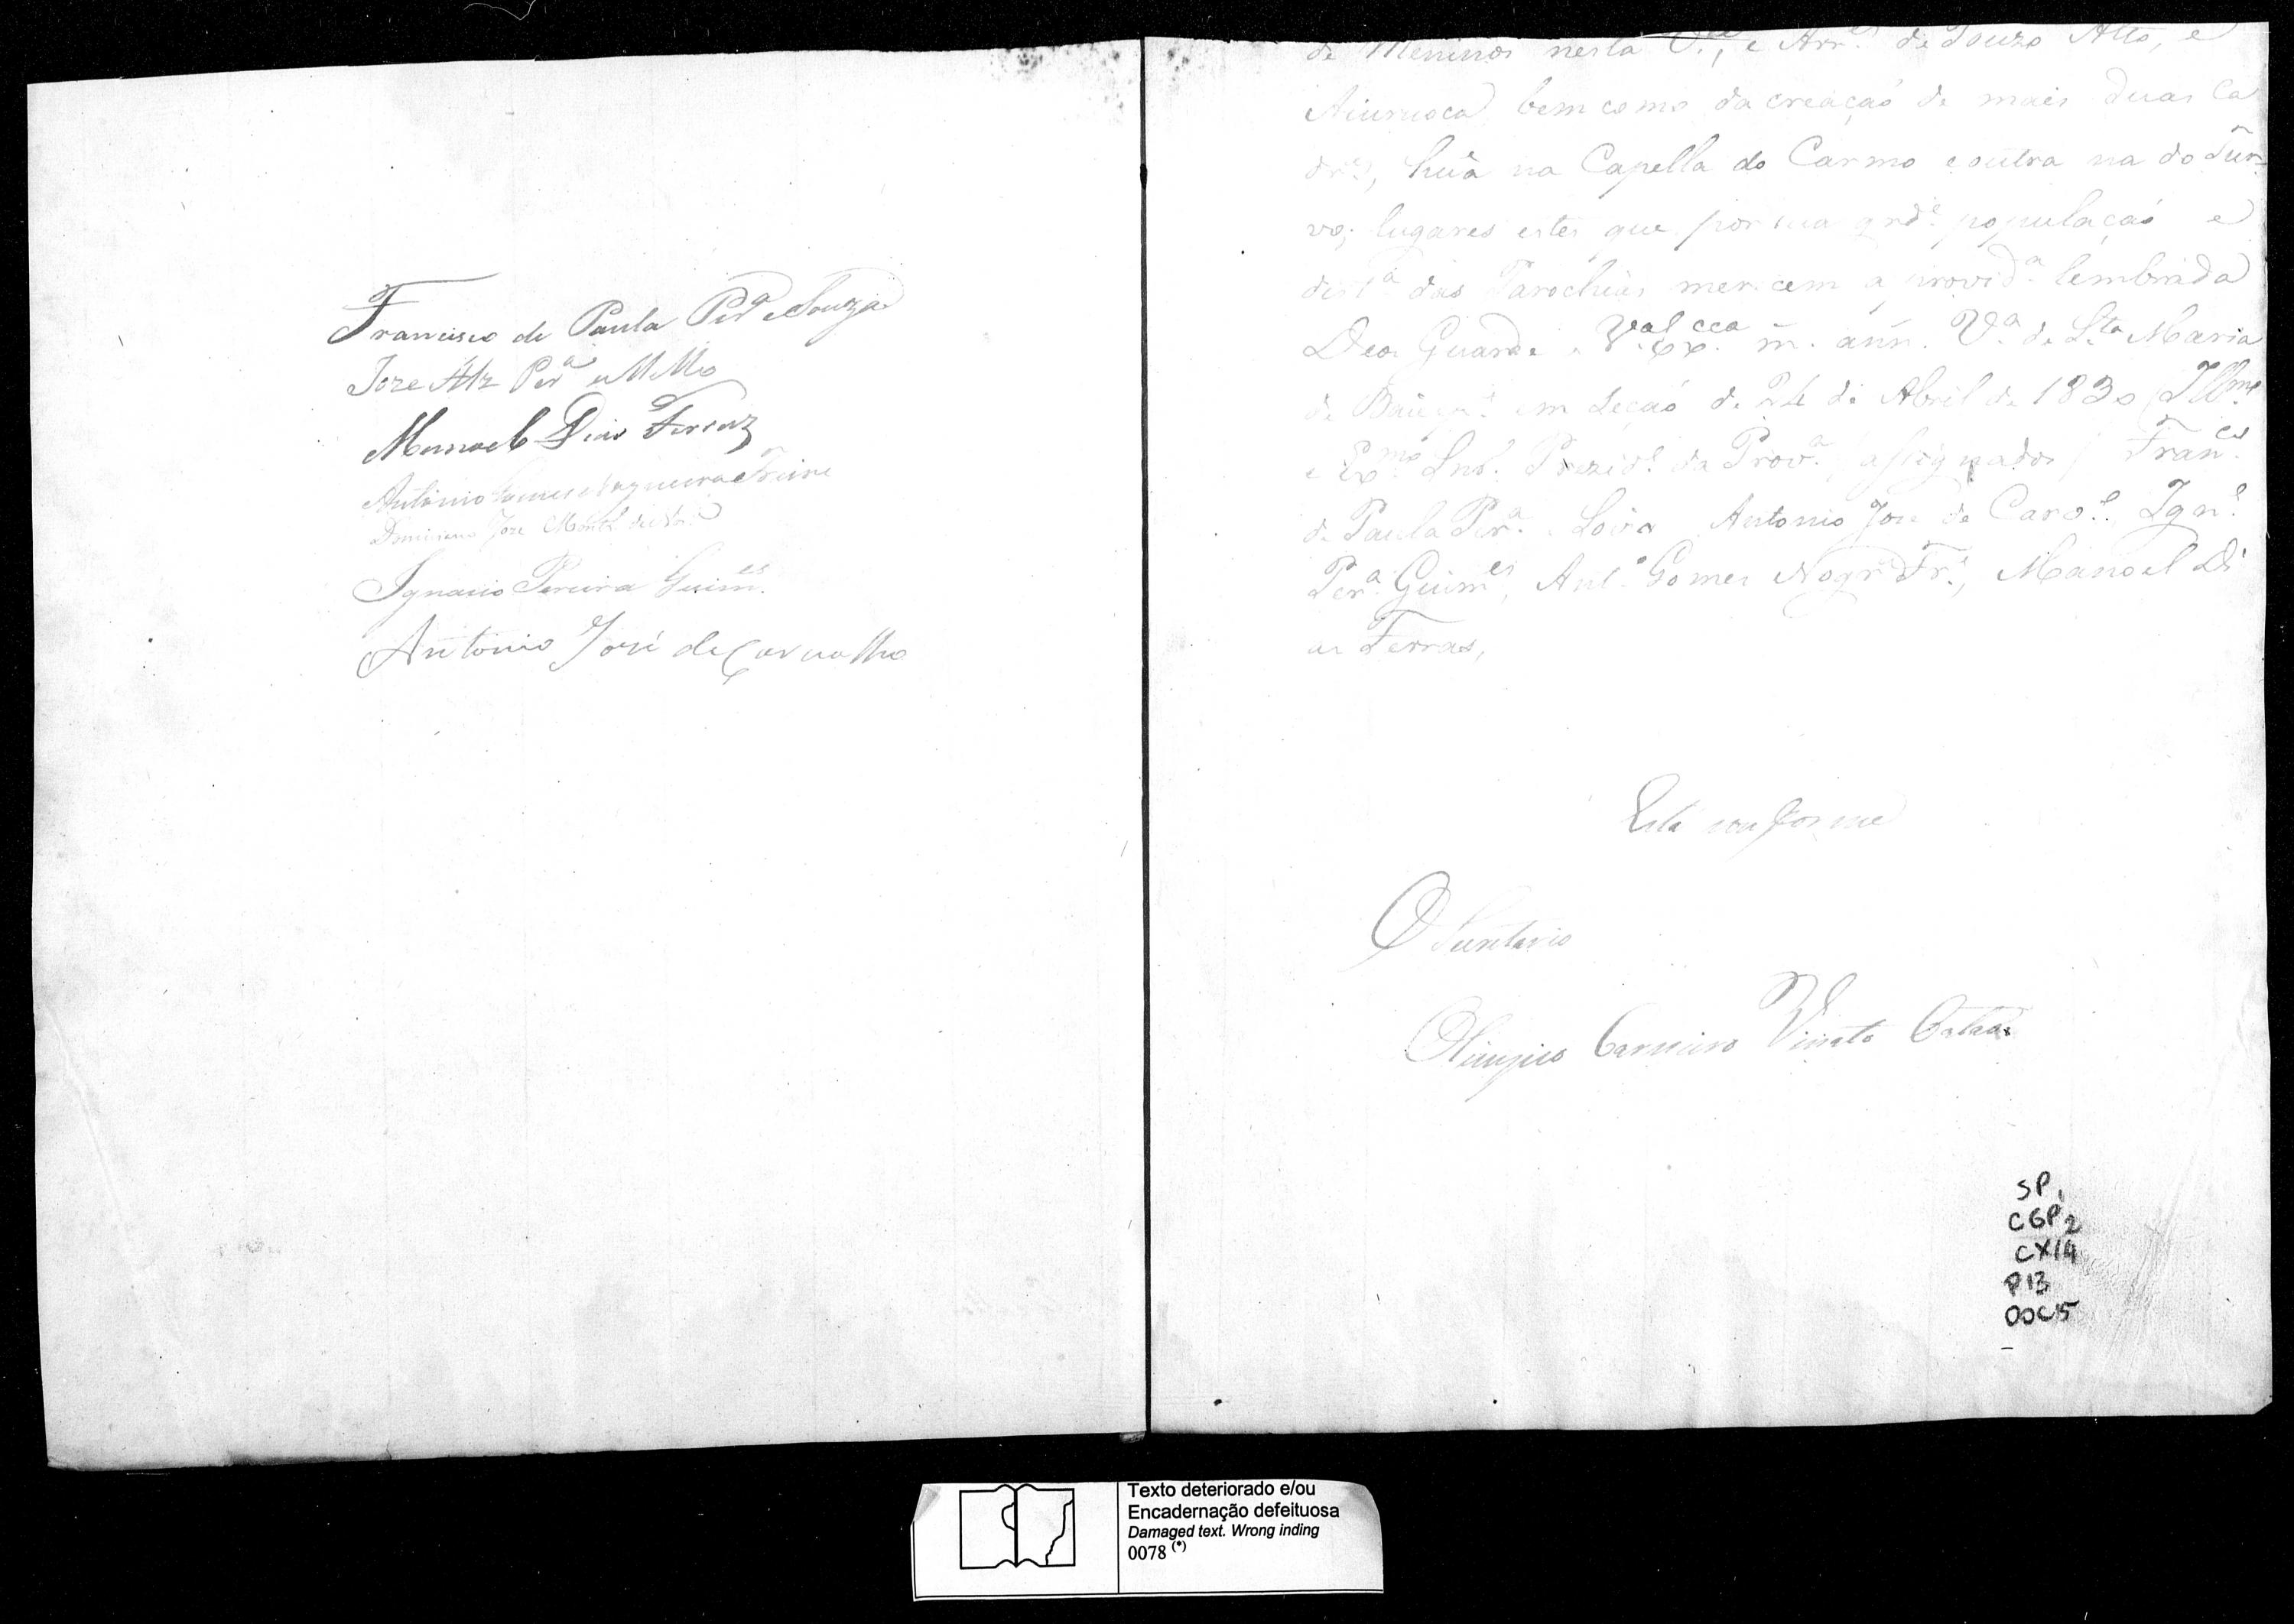 Francisco de Paula Per.ª e Souza
Joze Alz Per.ª
Manoel Dias Ferraz
Antonio Gomes Nogueira Freire
Joze
Ignacio Pereira Guim.es
Antonio José de Carvalho
de Meninos nesta V.ª, e Arr.es de Pouzo Alto, e
Aiuruoca bem como da creaçaõ de mais duas Ca
dr.as, huã na Capella do Carmo e outra na do Tur=
vo; lugares estes que por sua grd.e populaçaõ e
dist.ª das Parochias merecem a provid.ª lembrada
Deos Guarde a V.ª Ex.ª m. ann. V.ª de S.ta Maria
de Baepen.i em Seçaõ de 24 de Abril de 1830 Ill.mo
e Ex.mo Snr. Prezid.e da Prov.ª assignados / Fran.co
de Paula Per.ª e Antonio Joze de Carv.o Ign.o
Per.ª Guim.es, Ant.o Gomes Nogr.ª Fr.e, Manoel Di
as Ferras,
Está conforme
O Secretario
Olimpio Carneiro Viriato Catão
SP1
CGP2
CX14
P13
DOC15
Texto deteriorado e/ou
Encadernação defeituosa
Damaged text. Wrong inding
0078 (*)